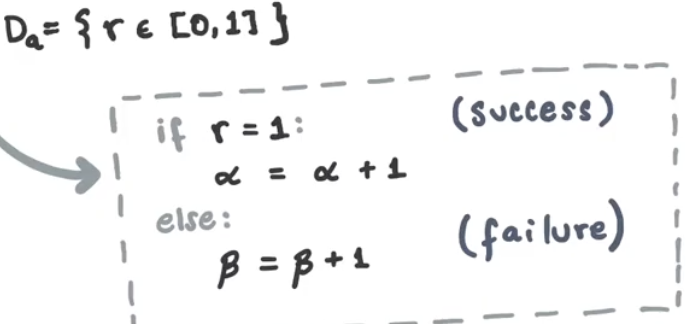 Dₐ = { r ϵ [0,1] }
if r = 1: (success)
α = α + 1
else: (failure)
β = β + 1